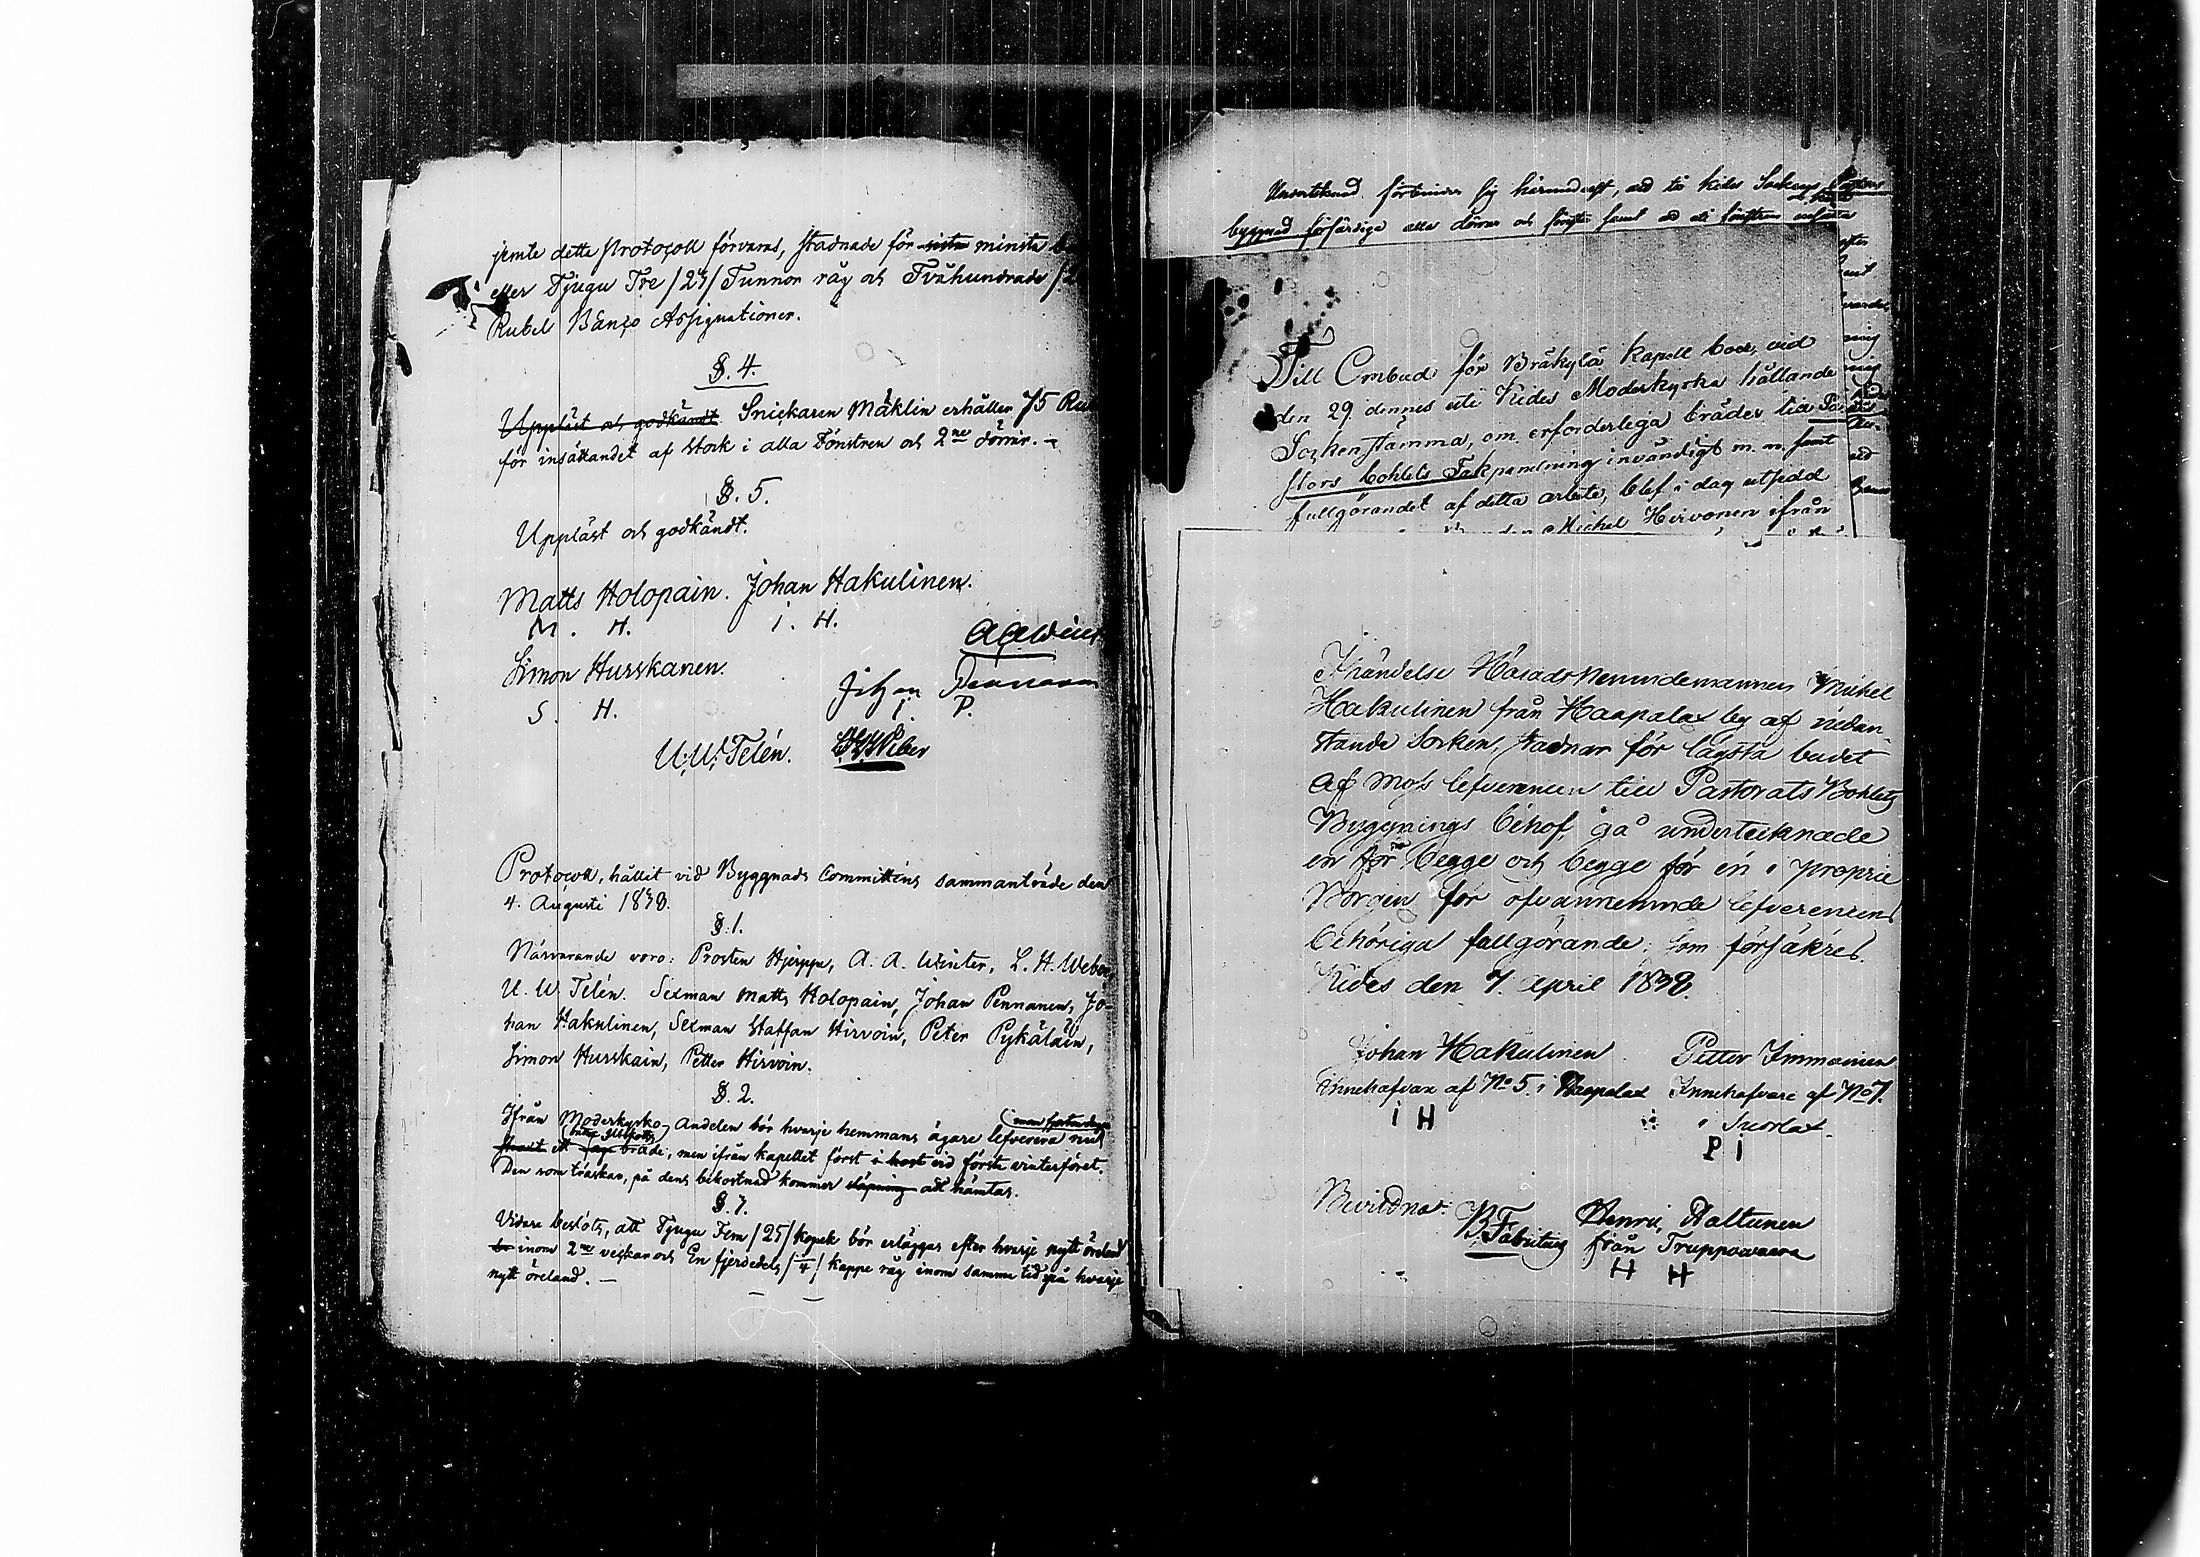 jemte detta Protocoll förvaras, stadnade för sista minsta
eller Tjugu Tre /23/ Tunnor råg och Tvåhundrade
Rubel Banco Assignationer.
§. 4.
Uppläst och godkändt. Snickaren Mäklin erhåller 75 Rub
för insättandet af stock i alla Fönstren och 2ne dörrar. -
§. 5.
Uppläst och godkändt.
Matts Holopain. Johan Hakulinen.
M. H. i. H.
A A Wint
Simon Hurskanen.
Johan Pennanen
S. H. i. P.
U. W. Telén. L H Weber
Protocoll, hållit vid Byggnads Committéns sammanträde den
4. Augusti 1838.
§. 1.
Närvarande voro: Prosten Hjerppe, A. A. Winter, L. H. Weber,
U. W. Telén. Sexman Matts Holopain, Johan Pennanen, Jo-
han Hakulinen, Sexman Staffan Hirvoin, Peter Pykäläin,
Simon Hurskain, Petter Hirvoin.
§. 2.
Ifrån Moderkyrko-Andelen bör hvarje hemmans ägare lefverera
ett bräde, men ifrån kapellet först i höst vid första vinterföret.
Den som tråskar, på dens bekostnad kommer släpning att hämtas.
§. 3.
Vidare beslöts, att Tjugu Fem /25/ kopek bör erläggas efter hvarje nytt öreland
inom 2ne veckor och En fjerdedels /1/4/ kappe råg inom samma tid på hvarje
nytt öreland. -
Undertecknad förbinder sig härmedelst, att till Kides Sockens
byggnad förfärdiga alla dörrar och fönster samt att i fönstren
Till Ombud för Bräkylä Kapell boer, vid
den 29 dennes uti Kides Moderkyrka hållande
Sockenstämma, om erforderliga bräder till
stors bohlets Takpanelning invändigt m. m. samt
fullgörandet af detta arbete, blef i dag utsedd
Michel Hirvonen ifrån
I händelse Häradsnämndemannen Mickel
Hakulinen från Haapalax by af nedan
stande Socken, stadnar för lägsta budet
af mos lefverencen till Pastorats Bohlets
Byggnings behof, gå undertecknade
en för begge och begge för en i proprie
Borgen för ofvannemnde lefverencens
behöriga fullgörande; som försäkres.
Kides den 7. April 1838.
Johan Hakulinen Petter Immoinen
Innehafvare af No 5. i Haapalax Innehafvare af No 7.
i H i Suorlax.
P i
Bevittnar:
B. Fabritius Henric Haltunen
från Truppovaara
H H